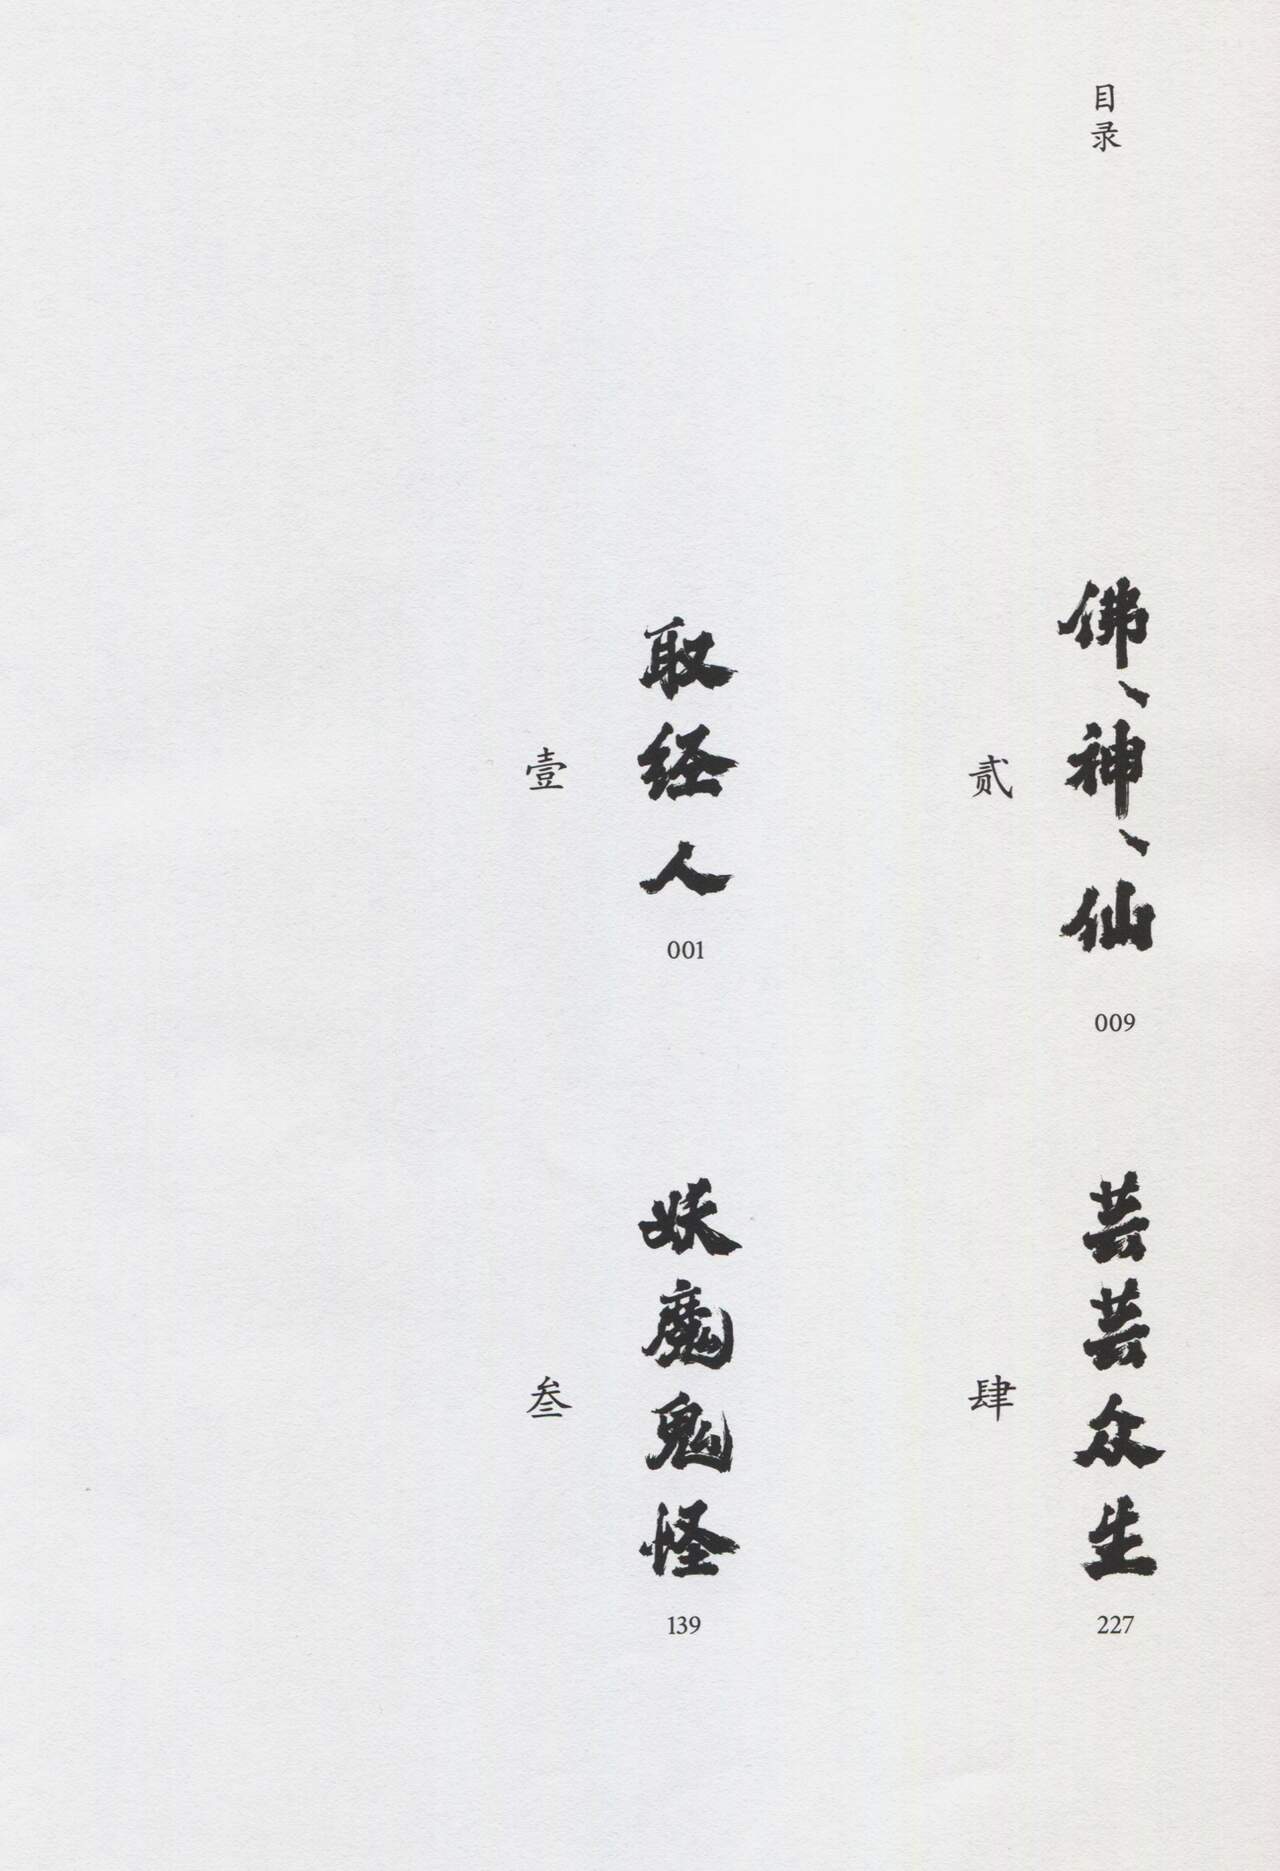 目录
壹
取经人
001
贰
佛、神、仙
009
叁
妖魔鬼怪
139
肆
芸芸众生
227